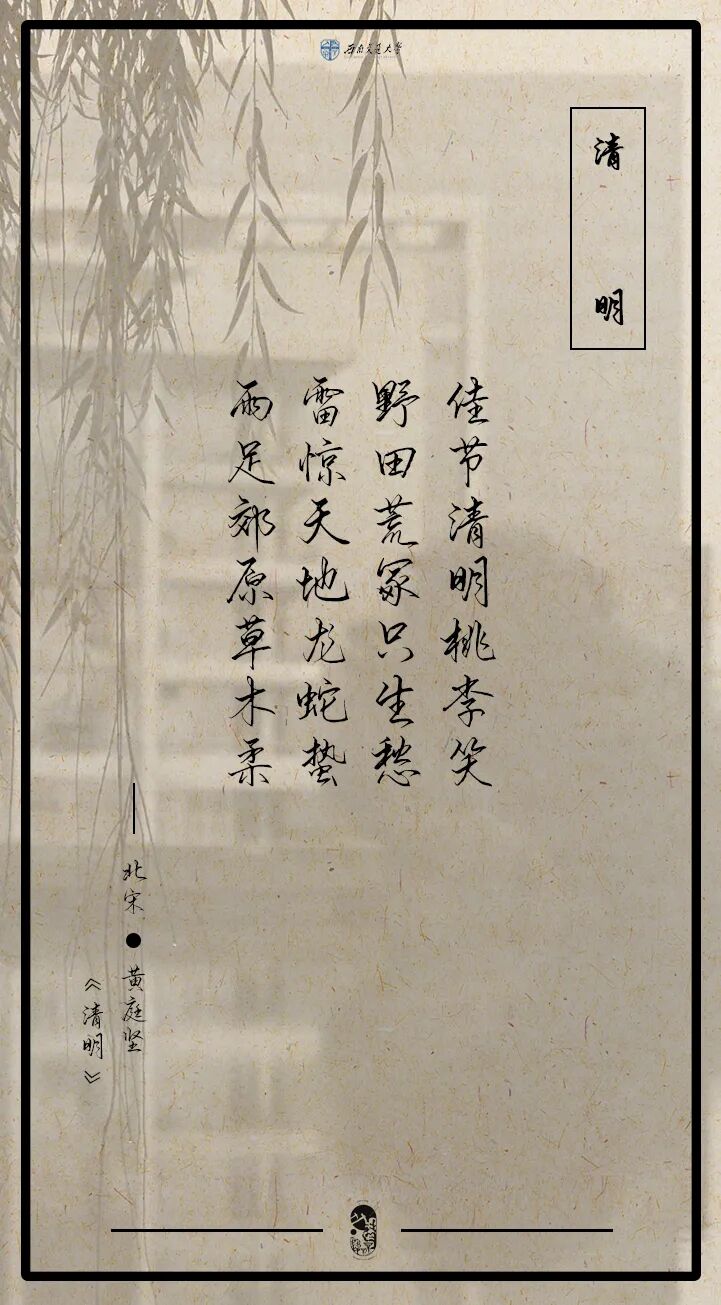 西南交通大学
清明
佳节清明桃李笑
野田荒冢只生愁
雷惊天地龙蛇蛰
雨足郊原草木柔
——北宋●黄庭坚
《清明》